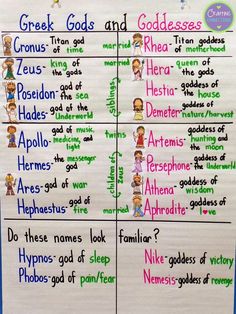 Greek Gods and Goddesses
Cronus- Titan god of time
married
Rhea- Titan goddess of motherhood
Zeus- king of the gods
married
Hera- queen of the gods
Poseidon- god of the sea
siblings
Hestia- goddess of house
Hades- god of the underworld
Demeter- goddess of nature/harvest
Apollo- god of music, medicine, and light
twins
Artemis- goddess of hunting and the moon
Hermes- the messenger god
children of Zeus
Persephone- goddess of the underworld
Ares- god of war
Athena- goddess of wisdom
Hephaestus- god of fire
married
Aphrodite- goddess of love
Do these names look familiar?
Hypnos- god of sleep
Nike- goddess of victory
Phobos- god of pain/fear
Nemesis- goddess of revenge